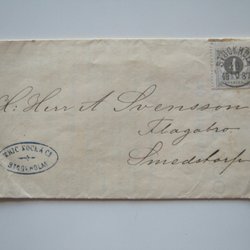 STOCKHOLM
H: Herr A Svensson
Flagabro
Smedstorp
ERIC & CO
STOCKHOLM